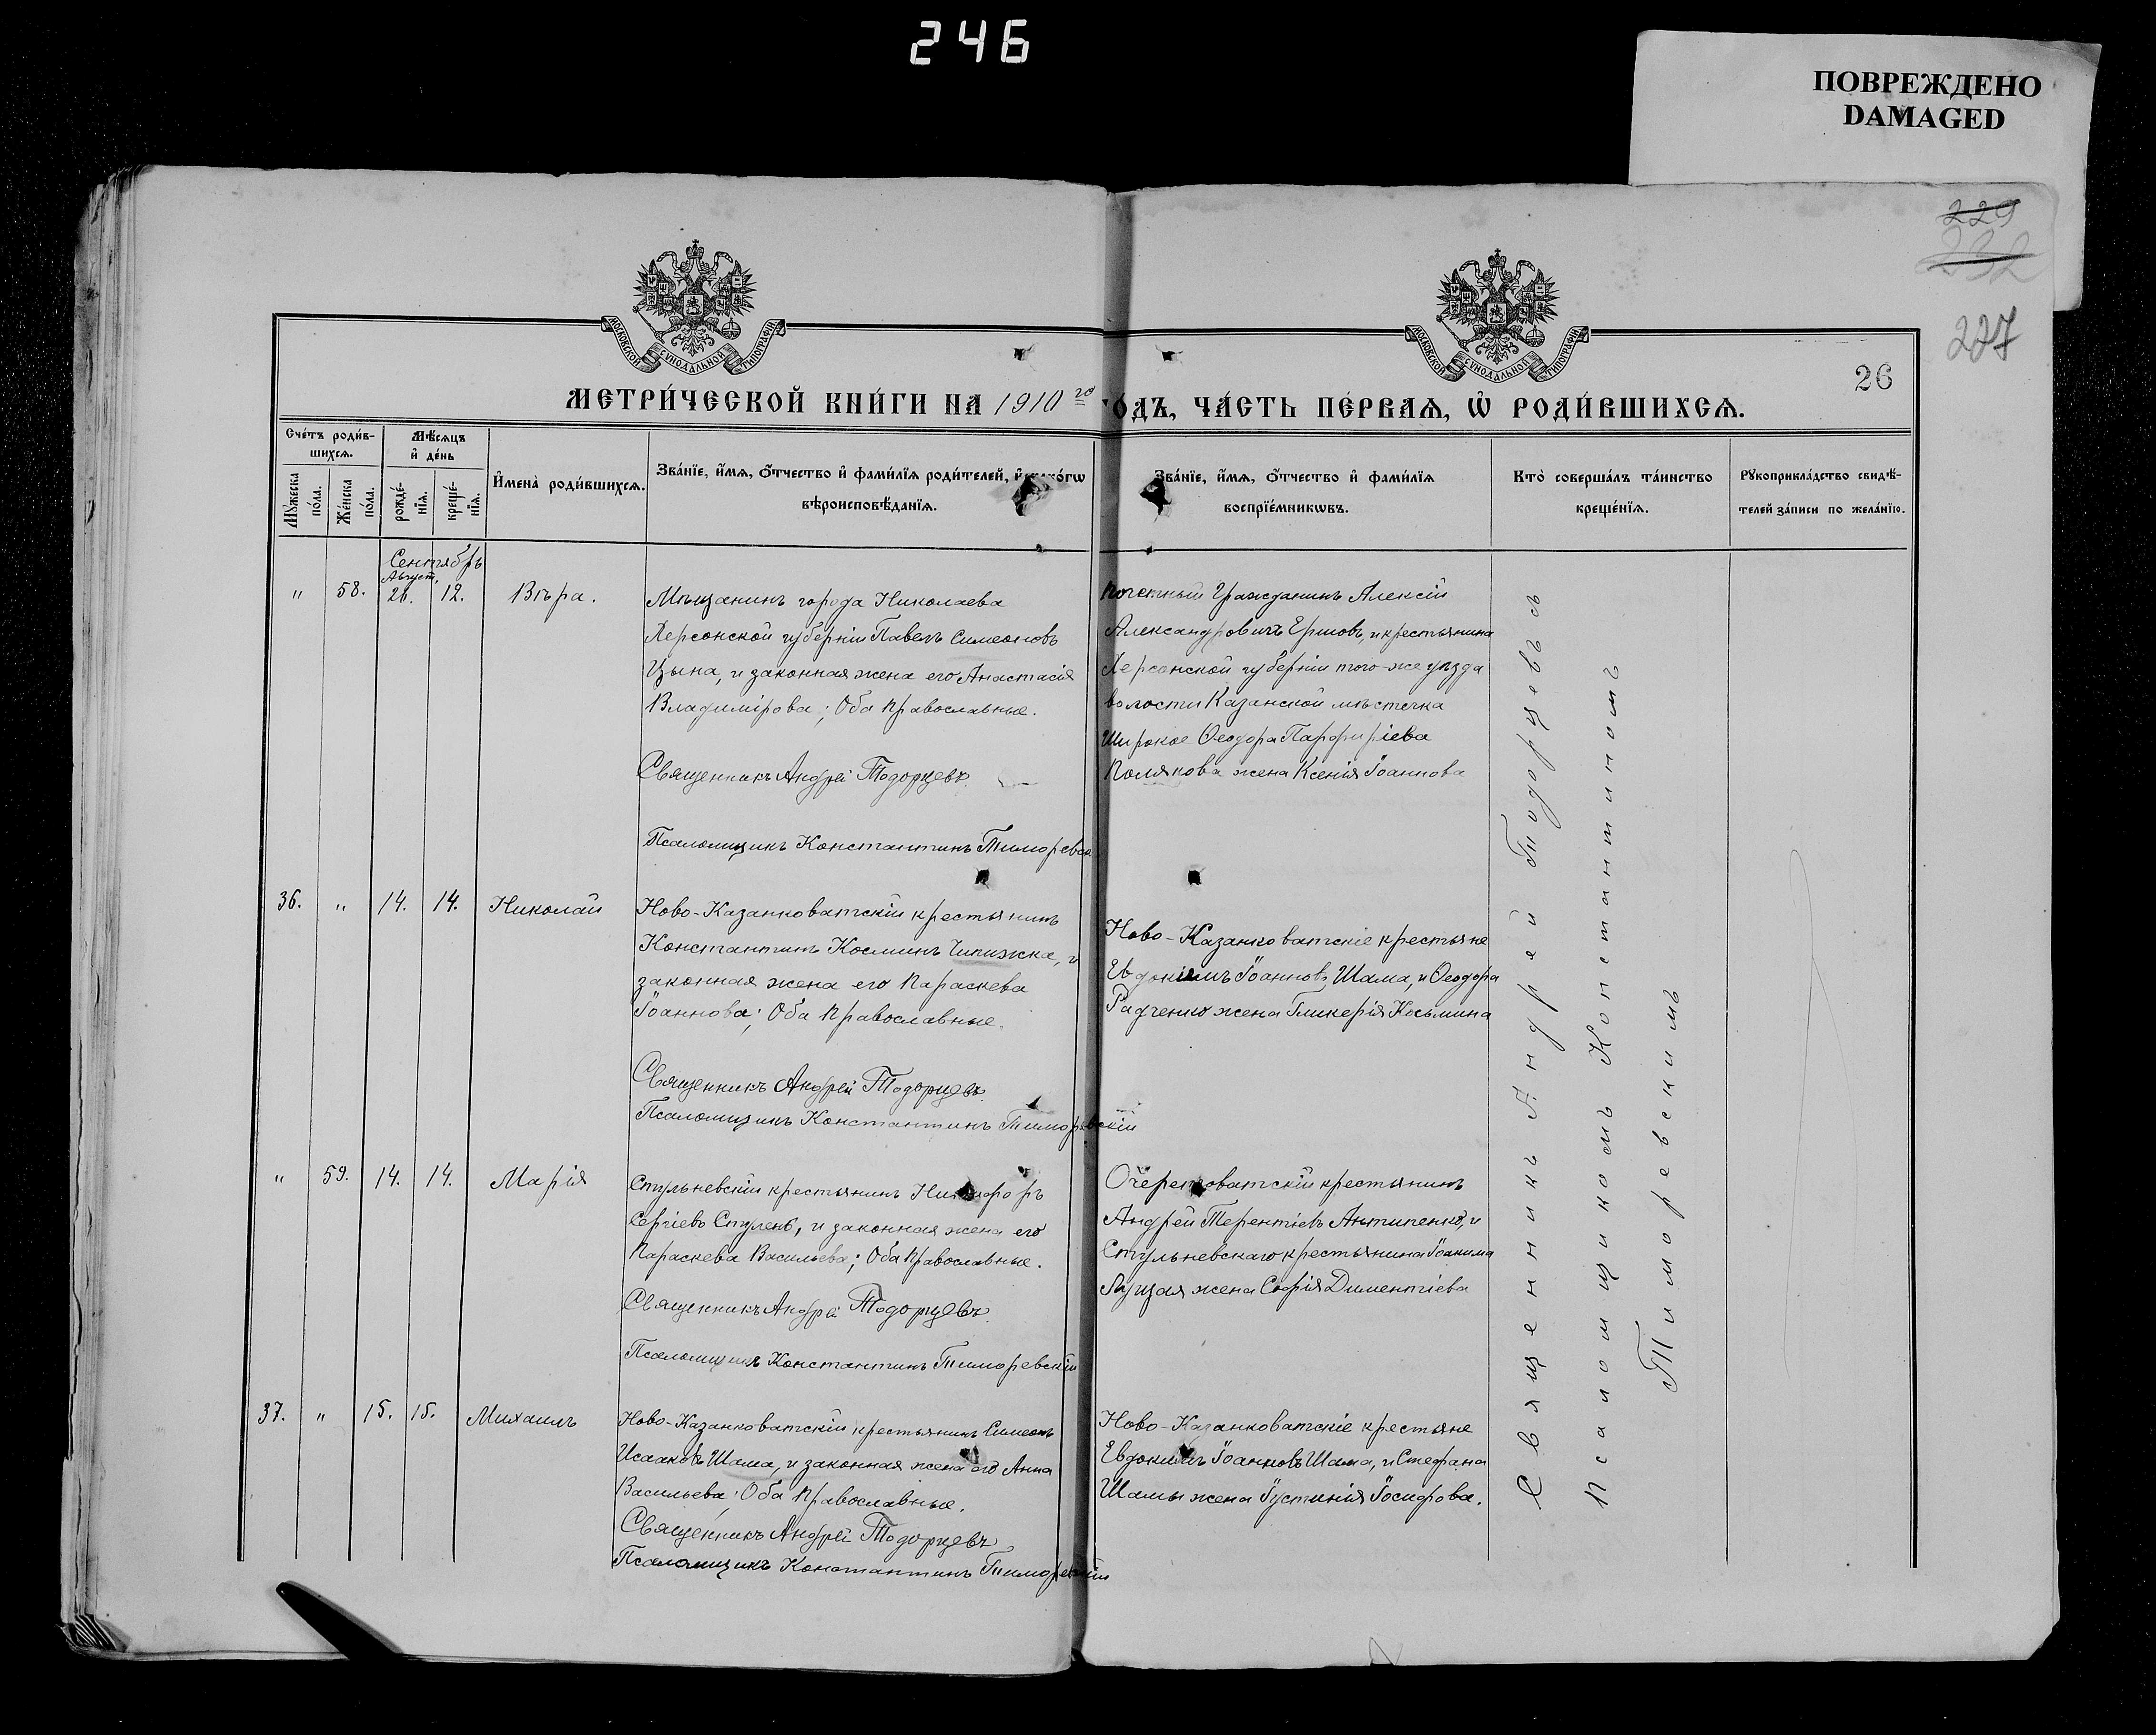 246
ПОВРЕЖДЕНО
DAMAGED
229
232
227
26
МОСКОВСКОЙ СУНОДАЛЬНОЙ ТИПОГРАФІИ
МОСКОВСКОЙ СУНОДАЛЬНОЙ ТИПОГРАФІИ
МЕТРИ́ЧЕСКОЙ КНИ́ГИ НА 1910 го
ОДЪ, ЧА́СТЬ ПЕ́РВАѦ, Ѽ РОДИ́ВШИХСѦ.
Сче́тъ роди́в-
шихсѧ.
Мѣ́сѧцъ
и҆ де́нь
Мꙋ́жеска по́ла.
Же́нска по́ла.
рожде́-
нїѧ.
креще́-
нїѧ.
И҆мена̀ роди́вшихсѧ.
Зва́нїе, и҆́мѧ, ѻ҆́тчество и҆ фами́лїѧ роди́телей,
вѣроисповѣ́данїѧ.
Зва́нїе, и҆́мѧ, ѻ҆́тчество и҆ фами́лїѧ
воспрїе́мникѡвъ.
Кто̀ соверша́лъ та́инство
креще́нїѧ.
Рꙋкоприкла́дство свидѣ́-
телей за́писи по жела́нїю.
Сентябрь
Август.
" 58. 26. 12. Вѣра.
Мѣщанинъ города Николаева
Херсонской губерніи Павелъ Симеоновъ
Цына, и законная жена его Анастасія
Владимірова; Оба православные.
Священникъ Андрей Тодорцевъ
Псаломщикъ Константинъ
Почетный Гражданинъ Алексій
Александровичъ Ершовъ, и крестьянина
Херсонской губерніи того-же уѣзда
волости Казанской мѣстечка
Широкое Ѳеодора Парфиріева
Полякова жена Ксенія Іоаннова
36. " 14. 14. Николай
Ново-Казанковатскій крестьянинъ
Константинъ Косминъ Чипижка, и
законная жена его Параскева
Іоаннова; Оба православные.
Священникъ Андрей Тодорцевъ
Псаломщикъ Константинъ Тиморевскій
Ново-Казанковатскіе крестьяне
Евдокимъ Іоанновъ Шама, и Ѳеодора
Радченко жена Гликерія Косьмина
" 59. 14. 14. Марія
Стульневскій крестьянинъ Никифоръ
Сергіевъ Стулень, и законная жена его
Параскева Васильева; Оба православные.
Священникъ Андрей Тодорцевъ
Псаломщикъ Константинъ Тиморевскій
Очеретоватскій крестьянинъ
Андрей Терентіевъ Антипенко, и
Стульневскаго крестьянина Іоакима
жена Софія Диментіева
37. " 15. 15. Михаилъ
Ново-Казанковатскій крестьянинъ Симеонъ
Исааковъ Шама, и законная жена его Анна
Васильева; Оба православные.
Священникъ Андрей Тодорцевъ
Псаломщикъ Константинъ Тиморевскій
Ново-Казанковатскіе крестьяне
Евдокимъ Іоанновъ Шама, и Стефана
Шамы жена Іустинія Іосифова.
Священникъ Андрей Тодорцевъ съ
Псаломщикомъ Константиномъ
Тиморевскимъ